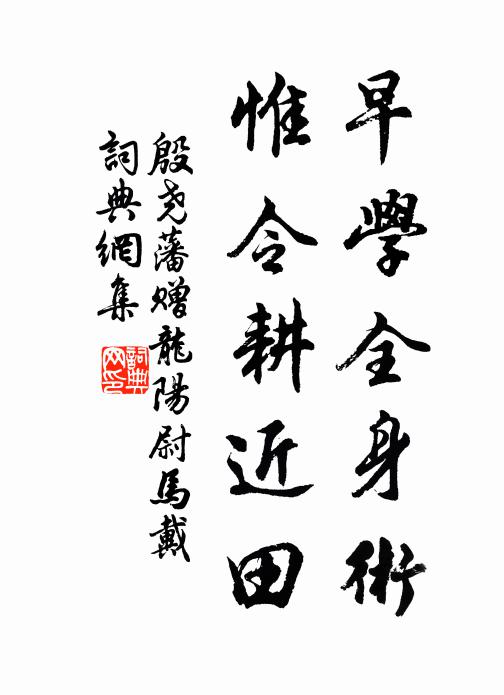 早學全身術
惟令耕近田
殷堯藩贈龍陽尉馬戴
詞典網集
詞典网印